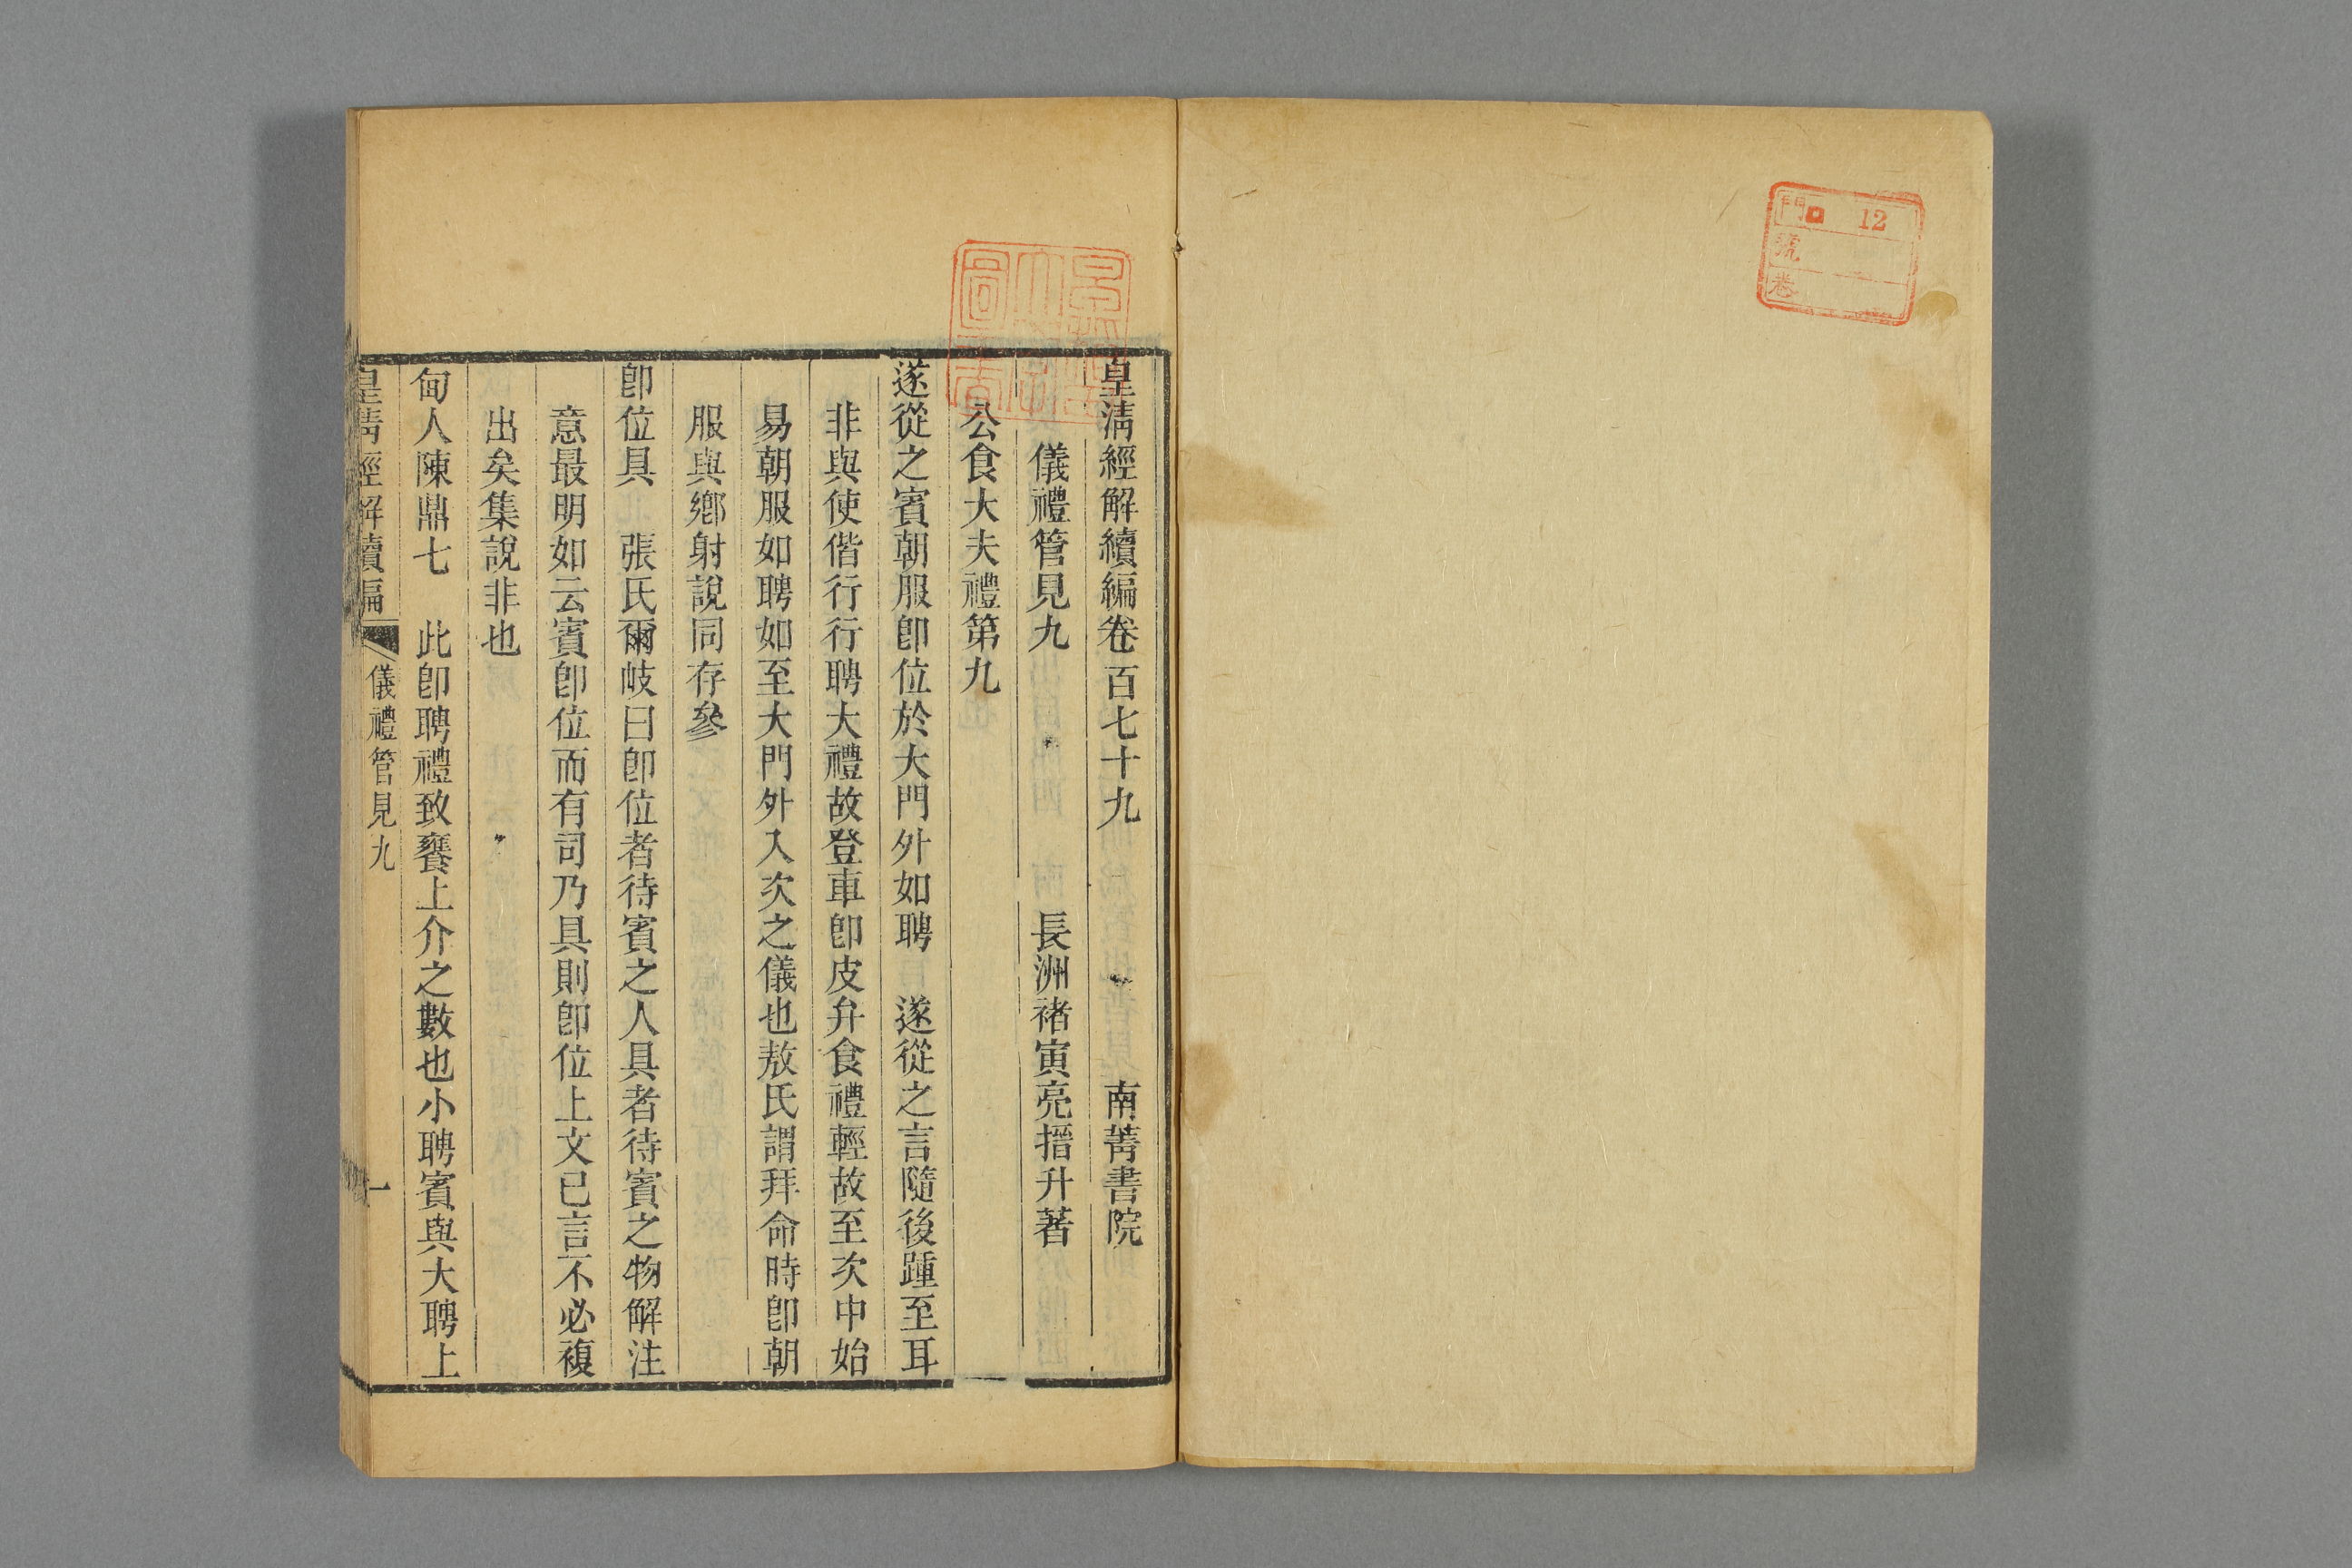 門 12
號
卷
皇淸經解續編卷百七十九 南菁書院
儀禮管見九 長洲褚寅亮搢升著
公食大夫禮第九
遂從之賓朝服卽位於大門外如聘 遂從之言隨後踵至耳
非與使偕行行聘大禮故登車卽皮弁食禮輕故至次中始
易朝服如聘如至大門外入次之儀也敖氏謂拜命時卽朝
服與鄉射說同存參
卽位具 張氏爾岐曰卽位者待賓之人具者待賓之物解注
意最明如云賓卽位而有司乃具則卽位上文已言不必複
出矣集說非也
甸人陳鼎七 此卽聘禮致饔上介之數也小聘賓與大聘上
皇淸經解續編 儀禮管見九 一